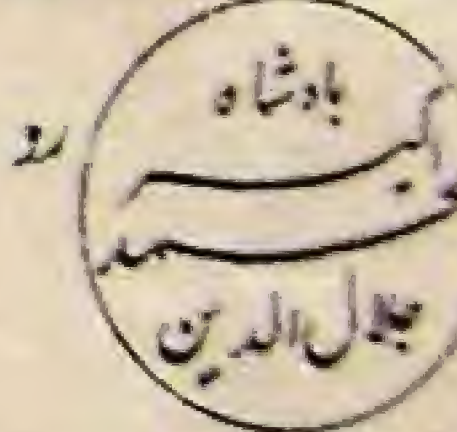 رو
بادشاه
اکبر
محمد
جلال الدین